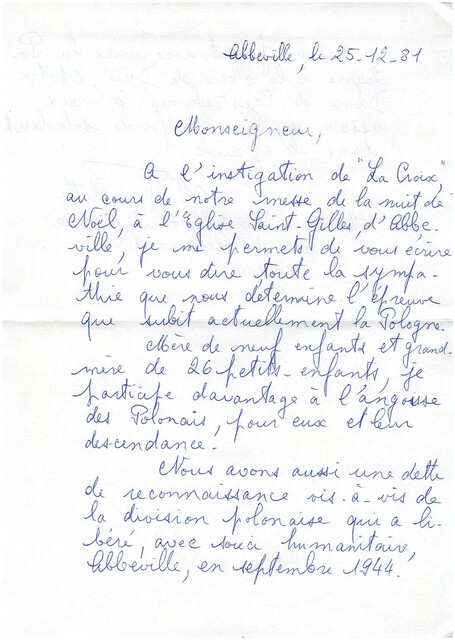 Abbeville, le 25-12-81
Monseigneur,
A l'instigation de "La Croix",
au cours de notre messe de la nuit de
Noël, à l'Eglise Saint-Gilles, d'Abbe-
ville, je me permets de vous écrire
pour vous dire toute la sympa-
thie que nous détermine l'épreuve
que subit actuellement la Pologne.
Mère de neuf enfants et grand-
mère de 26 petits-enfants, je
participe davantage à l'angoisse
des Polonais, pour eux et leur
descendance.
Nous avons aussi une dette
de reconnaissance vis-à-vis de
la division polonaise qui a li-
béré, avec souci humanitaire,
Abbeville, en septembre 1944.